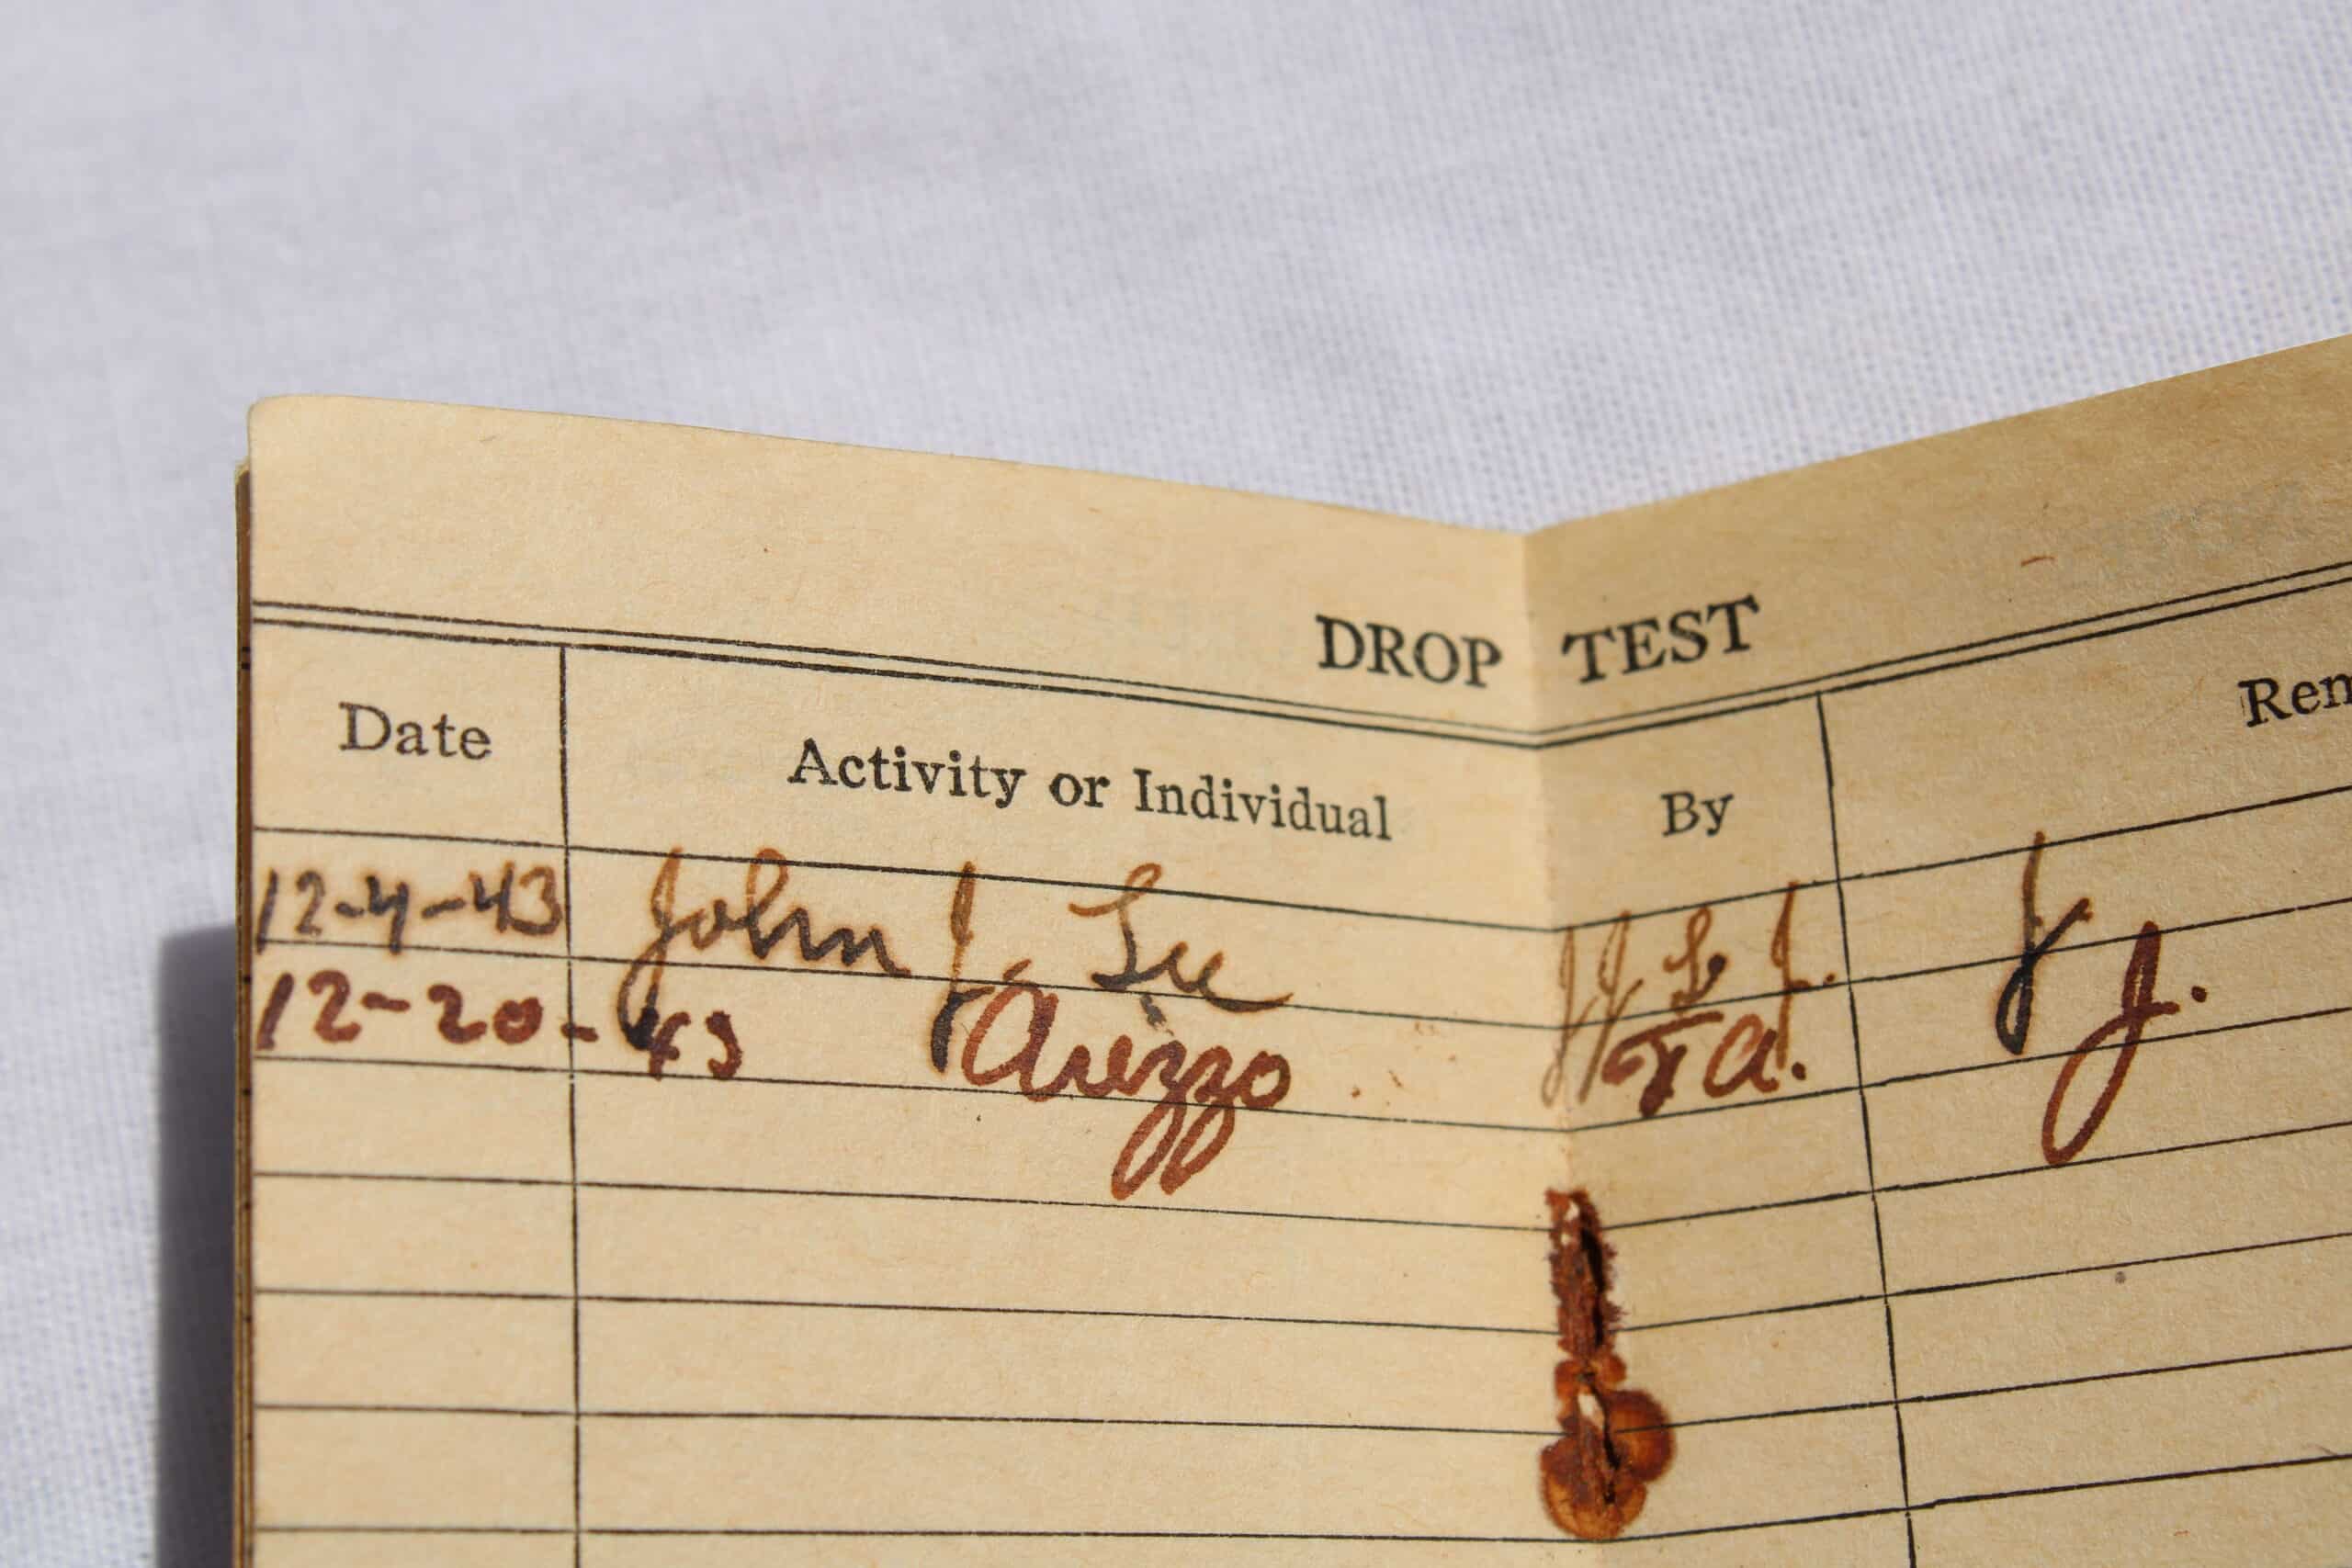 DROP TEST
Date Activity or Individual By Rem
12-4-43 John J. Lee J
12-20-43 Arezzo F A. J.